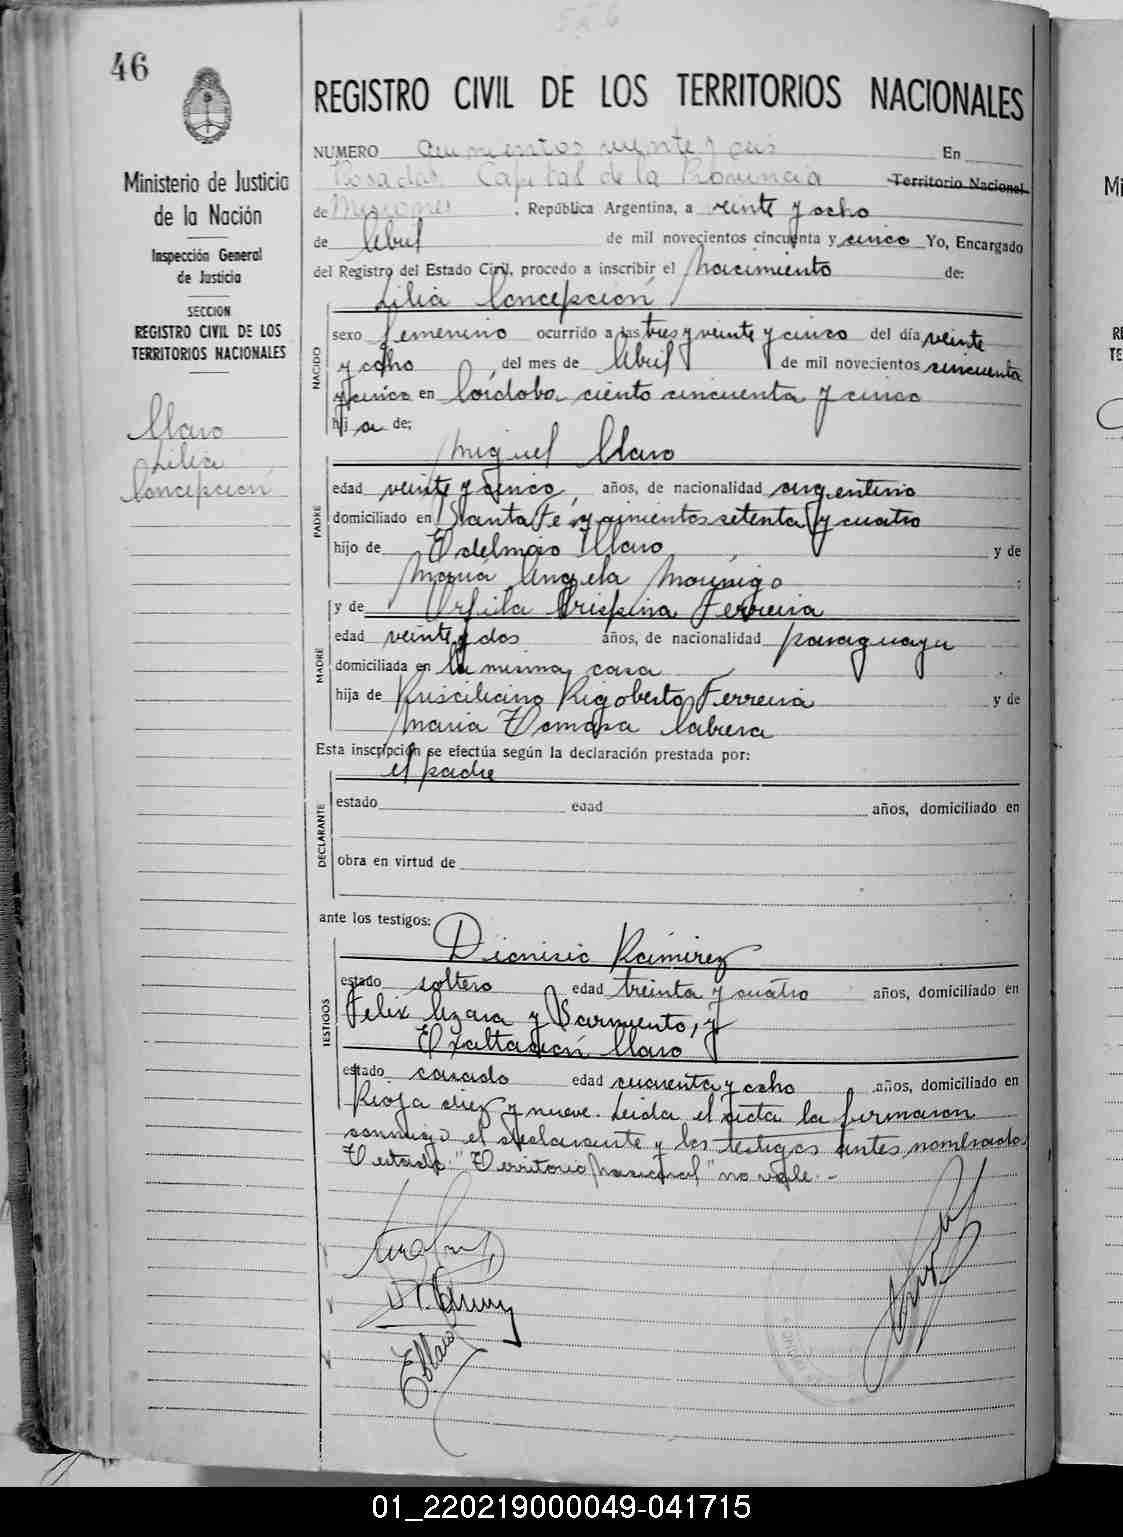 46
Ministerio de Justicia
de la Nación
Inspección General
de Justicia
SECCION
REGISTRO CIVIL DE LOS
TERRITORIOS NACIONALES
Claro
Lilia
Concepción
REGISTRO CIVIL DE LOS TERRITORIOS NACIONALES
NUMERO veinte y seis En
Posadas Capital de la Provincia Territorio Nacional
de Misiones , República Argentina, a veinte y ocho
de Abril de mil novecientos cincuenta y cinco Yo, Encargado
del Registro del Estado Civil, procedo a inscribir el Nacimiento de:
Lilia Concepción
NACIDO
sexo femenino ocurrido a las tres y veinte y cinco del día veinte
y ocho , del mes de Abril de mil novecientos cincuenta
y cinco en Córdoba ciento cincuenta y cinco
hija de:
Miguel Claro
PADRE
edad veinte y cinco, años, de nacionalidad argentino
domiciliado en Santa Fé setenta y cuatro
hijo de Claro y de
María Angela Morínigo
y de Crispina Ferreira
MADRE
edad veinte y dos años, de nacionalidad paraguaya
domiciliada en la misma casa
hija de Prisciliano Rigoberto Ferreira y de
María Tomasa Cabrera
Esta inscripción se efectúa según la declaración prestada por:
el padre
DECLARANTE
estado edad años, domiciliado en
obra en virtud de
ante los testigos:
Dionisio Ramirez
TESTIGOS
estado soltero edad treinta y cuatro años, domiciliado en
Felix Azara y Sarmiento, y
Exaltación Claro
estado casado edad cuarenta y ocho años, domiciliado en
Rioja diez y nueve. Leida el acta la firmaron
conmigo el declarante y los testigos antes nombrados.
Testado: "Territorio Nacional" no vale.-
01_220219000049-041715